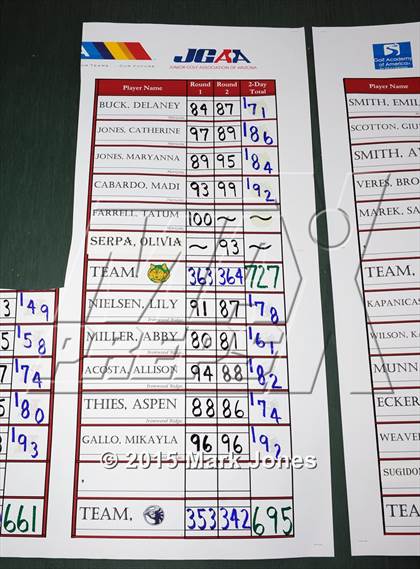 JGAA
JUNIOR GOLF ASSOCIATION OF ARIZONA
Golf Academy
of America
Player Name Round 1 Round 2 2-Day Total
BUCK, DELANEY 84 87 171
JONES, CATHERINE 97 89 186
JONES, MARYANNA 89 95 184
CABARDO, MADI 93 99 192
FARRELL, TATUM 100 ~ ~
SERPA, OLIVIA ~ 93 ~
TEAM, 363 364 727
NIELSEN, LILY 91 87 178
MILLER, ABBY 80 81 161
ACOSTA, ALLISON 94 88 182
THIES, ASPEN 88 86 174
GALLO, MIKAYLA 96 96 192
TEAM, 353 342 695
3 149
5 158
7 174
5 180
193
661
Player Name
SMITH, EMIL
SCOTTON, GIU
SMITH, A
VERES, BRO
MAREK, SA
TEAM,
KAPANICA
WILSON, KA
MUNN
ECKER
WEAVER
SUGIDO
TEAM,
MAXPREPS
© 2015 Mark Jones